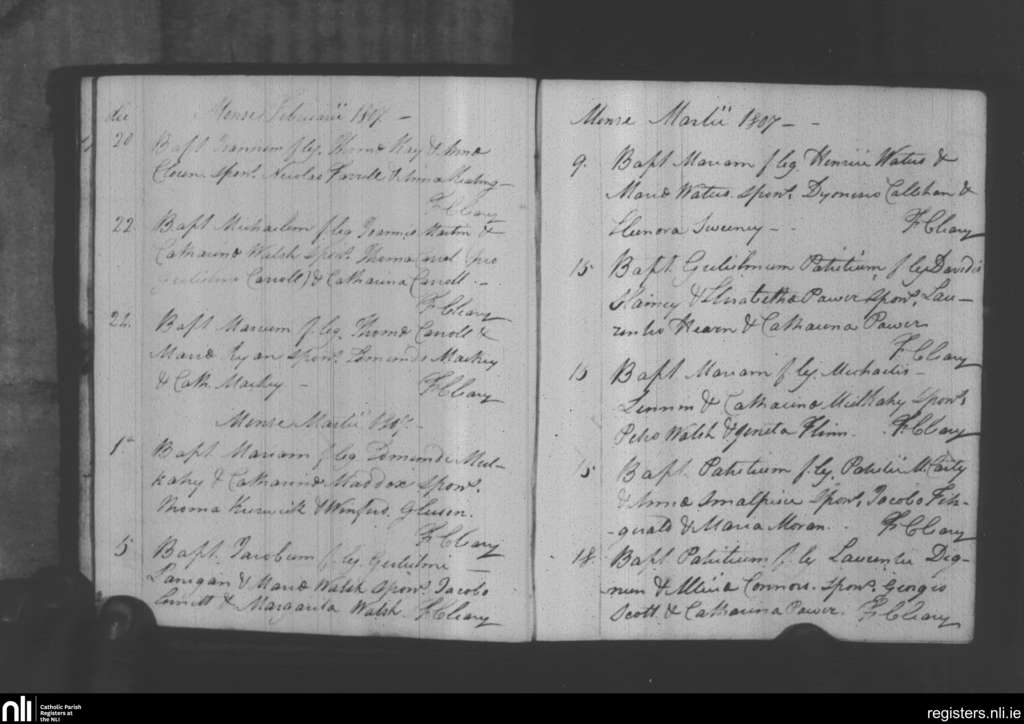 die Mense Februarii 1807 -
20 Bapt. Joannem f leg. Thomæ Kay & Annæ
spon.s Nicolao Farrell & Anna Keating -
F. Cleary
22 Bapt Michaelem f leg Joannis Martin &
Catharinæ Walsh spon.s Thoma Carroll (pro
Gulielmo Carroll) & Catharina Carroll. -
F. Cleary
Bapt Mariam f leg. Thomæ Carroll &
Mariæ Ryan spon.s Edmundo Mackey
& Cath. Mackey - F. Cleary
Mense Martii 1807. -
1 Bapt Mariam f leg Edmundi Mul-
kahy & Catharinæ Maddox spon.s
Thoma & Winifrd. Gleeson.
F. Cleary
5 Bapt. Jacobum f leg Gulielmi
Lanigan & Mariæ Walsh spon.s Jacobo
& Margarita Walsh F. Cleary
Mense Martii 1807 - -
9. Bapt Mariam f leg Henrici Waters &
Mariæ Waters spon.s Dyonisio Callahan &
Eleonora Sweeney - . F. Cleary
15 Bapt. Gulielmum Patritium f leg Davidis
& Elizabethæ Power spon.s Lau-
rentio Hearn & Catharina Power
F. Cleary
15 Bapt Mariam f leg. Michaelis -
& Catharinæ Mulkahy spon.s
Petro Walsh & Flinn. F. Cleary
15 Bapt. Patritium f. leg. Patritii McCarty
& Annæ spon.s Jacobo Fitz-
gerald & Maria Moran. . F. Cleary
18. Bapt Patritium f. leg Laurentii Dig-
num & Connors. spon.s Georgio
Scott & Catharina Power. F. Cleary
nli Catholic Parish
Registers at
the NLI
registers.nli.ie